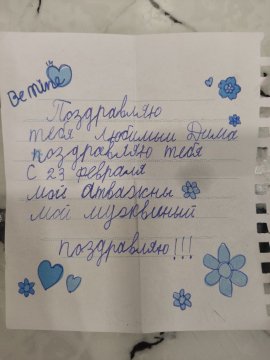 Be mine
Поздравляю
тебя любимый Дима
поздравляю тебя
с 23 февраля
мой отважны
мой мужвиний
поздравляю!!!